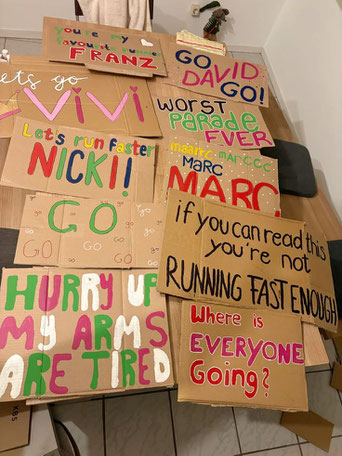 you're my
favourite runner
FRANZ
Lets go
ViVi
Let's run faster
NICKI!
GO
go
go
go
GO
GO
GO
go
HURRY UP
MY ARMS
ARE TIRED
GO
DAVID
GO!
WORST
PARADE
EVER
maarrc-marccc
MARC
MARC
if you can read this
you're not
RUNNING FAST ENOUGH
Where is
EVERYONE
Going?